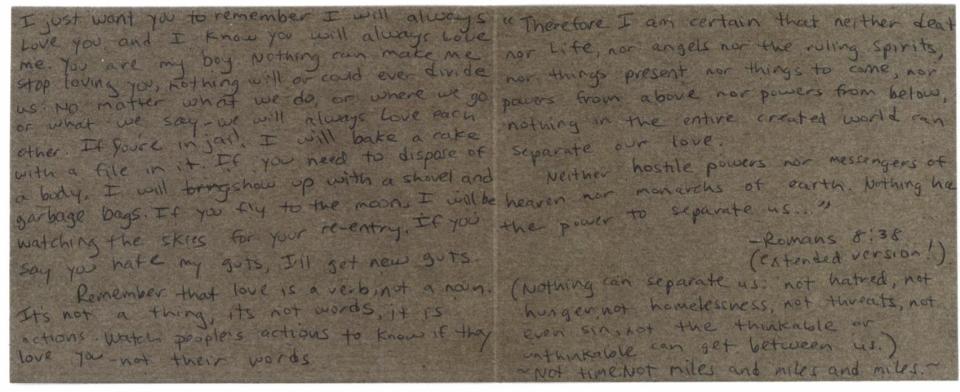 I just want you to remember I will always
love you and I know you will always love
me. You are my boy Nothing can make me
stop loving you, nothing will or could ever divide
us. No matter what we do, or where we go
or what we say - we will always love each
other. If you're in jail, I will bake a cake
with a file in it. If you need to dispose of
a body, I will bring show up with a shovel and
garbage bags. If you fly to the moon, I will be
watching the skies for your re-entry. If you
say you hate my guts, I'll get new guts.
Remember that love is a verb, not a noun.
It's not a thing, its not words, it is
actions. Watch people's actions to know if they
love you - not their words
"Therefore I am certain that neither deat
nor life, nor angels nor the ruling spirits,
nor things present nor things to come, nor
powers from above nor powers from below,
nothing in the entire created world can
separate our love.
Neither hostile powers nor messengers of
heaven nor monarchs of earth. Nothing ha
the power to separate us..."
-Romans 8:38
(extended version!)
(Nothing can separate us: not hatred, not
hunger, not homelessness, not threats, not
even sin, not the thinkable or
unthinkable can get between us.)
~Not time. Not miles and miles and miles.~